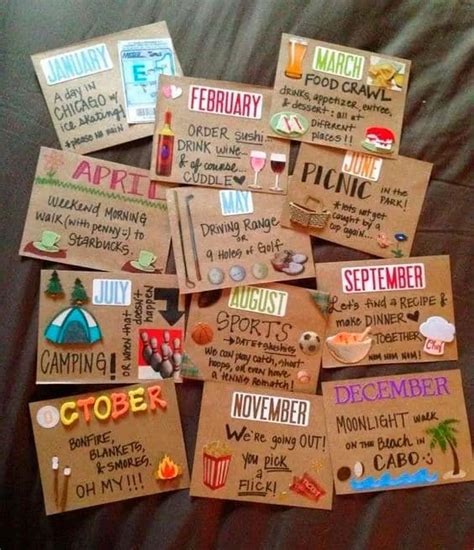 JANUARY
A day in
CHICAGO w/
ice skating!
*please no rain
FEBRUARY
ORDER sushi...
DRINK wine...
& of course...
CUDDLE ♡
MARCH
FOOD CRAWL
drinks, appetizer, entree,
& dessert: all at
Different
places!!
APRIL
Weekend Morning
Walk (with penny :) to
Starbucks.
MAY
DRIVING RANGE
OR
9 Holes of Golf
JUNE
PICNIC in the
PARK!
*lets not get
caught by a
cop again...
JULY
CAMPING!
OR when that
doesn't
happen
AUGUST
SPORTS
→ DATE + slushies
We can play catch, short
hoops, or even have
a TENNIS Rematch!
SEPTEMBER
Let's find a RECIPE &
make DINNER
TOGETHER
NOM NOM NOM!
Chef
OCTOBER
BONFIRE,
BLANKETS,
& SMORES.
OH MY!!!
NOVEMBER
We're going OUT!
you PICK
a
Flick!
DECEMBER
MOONLIGHT walk
on the Beach in
CABO